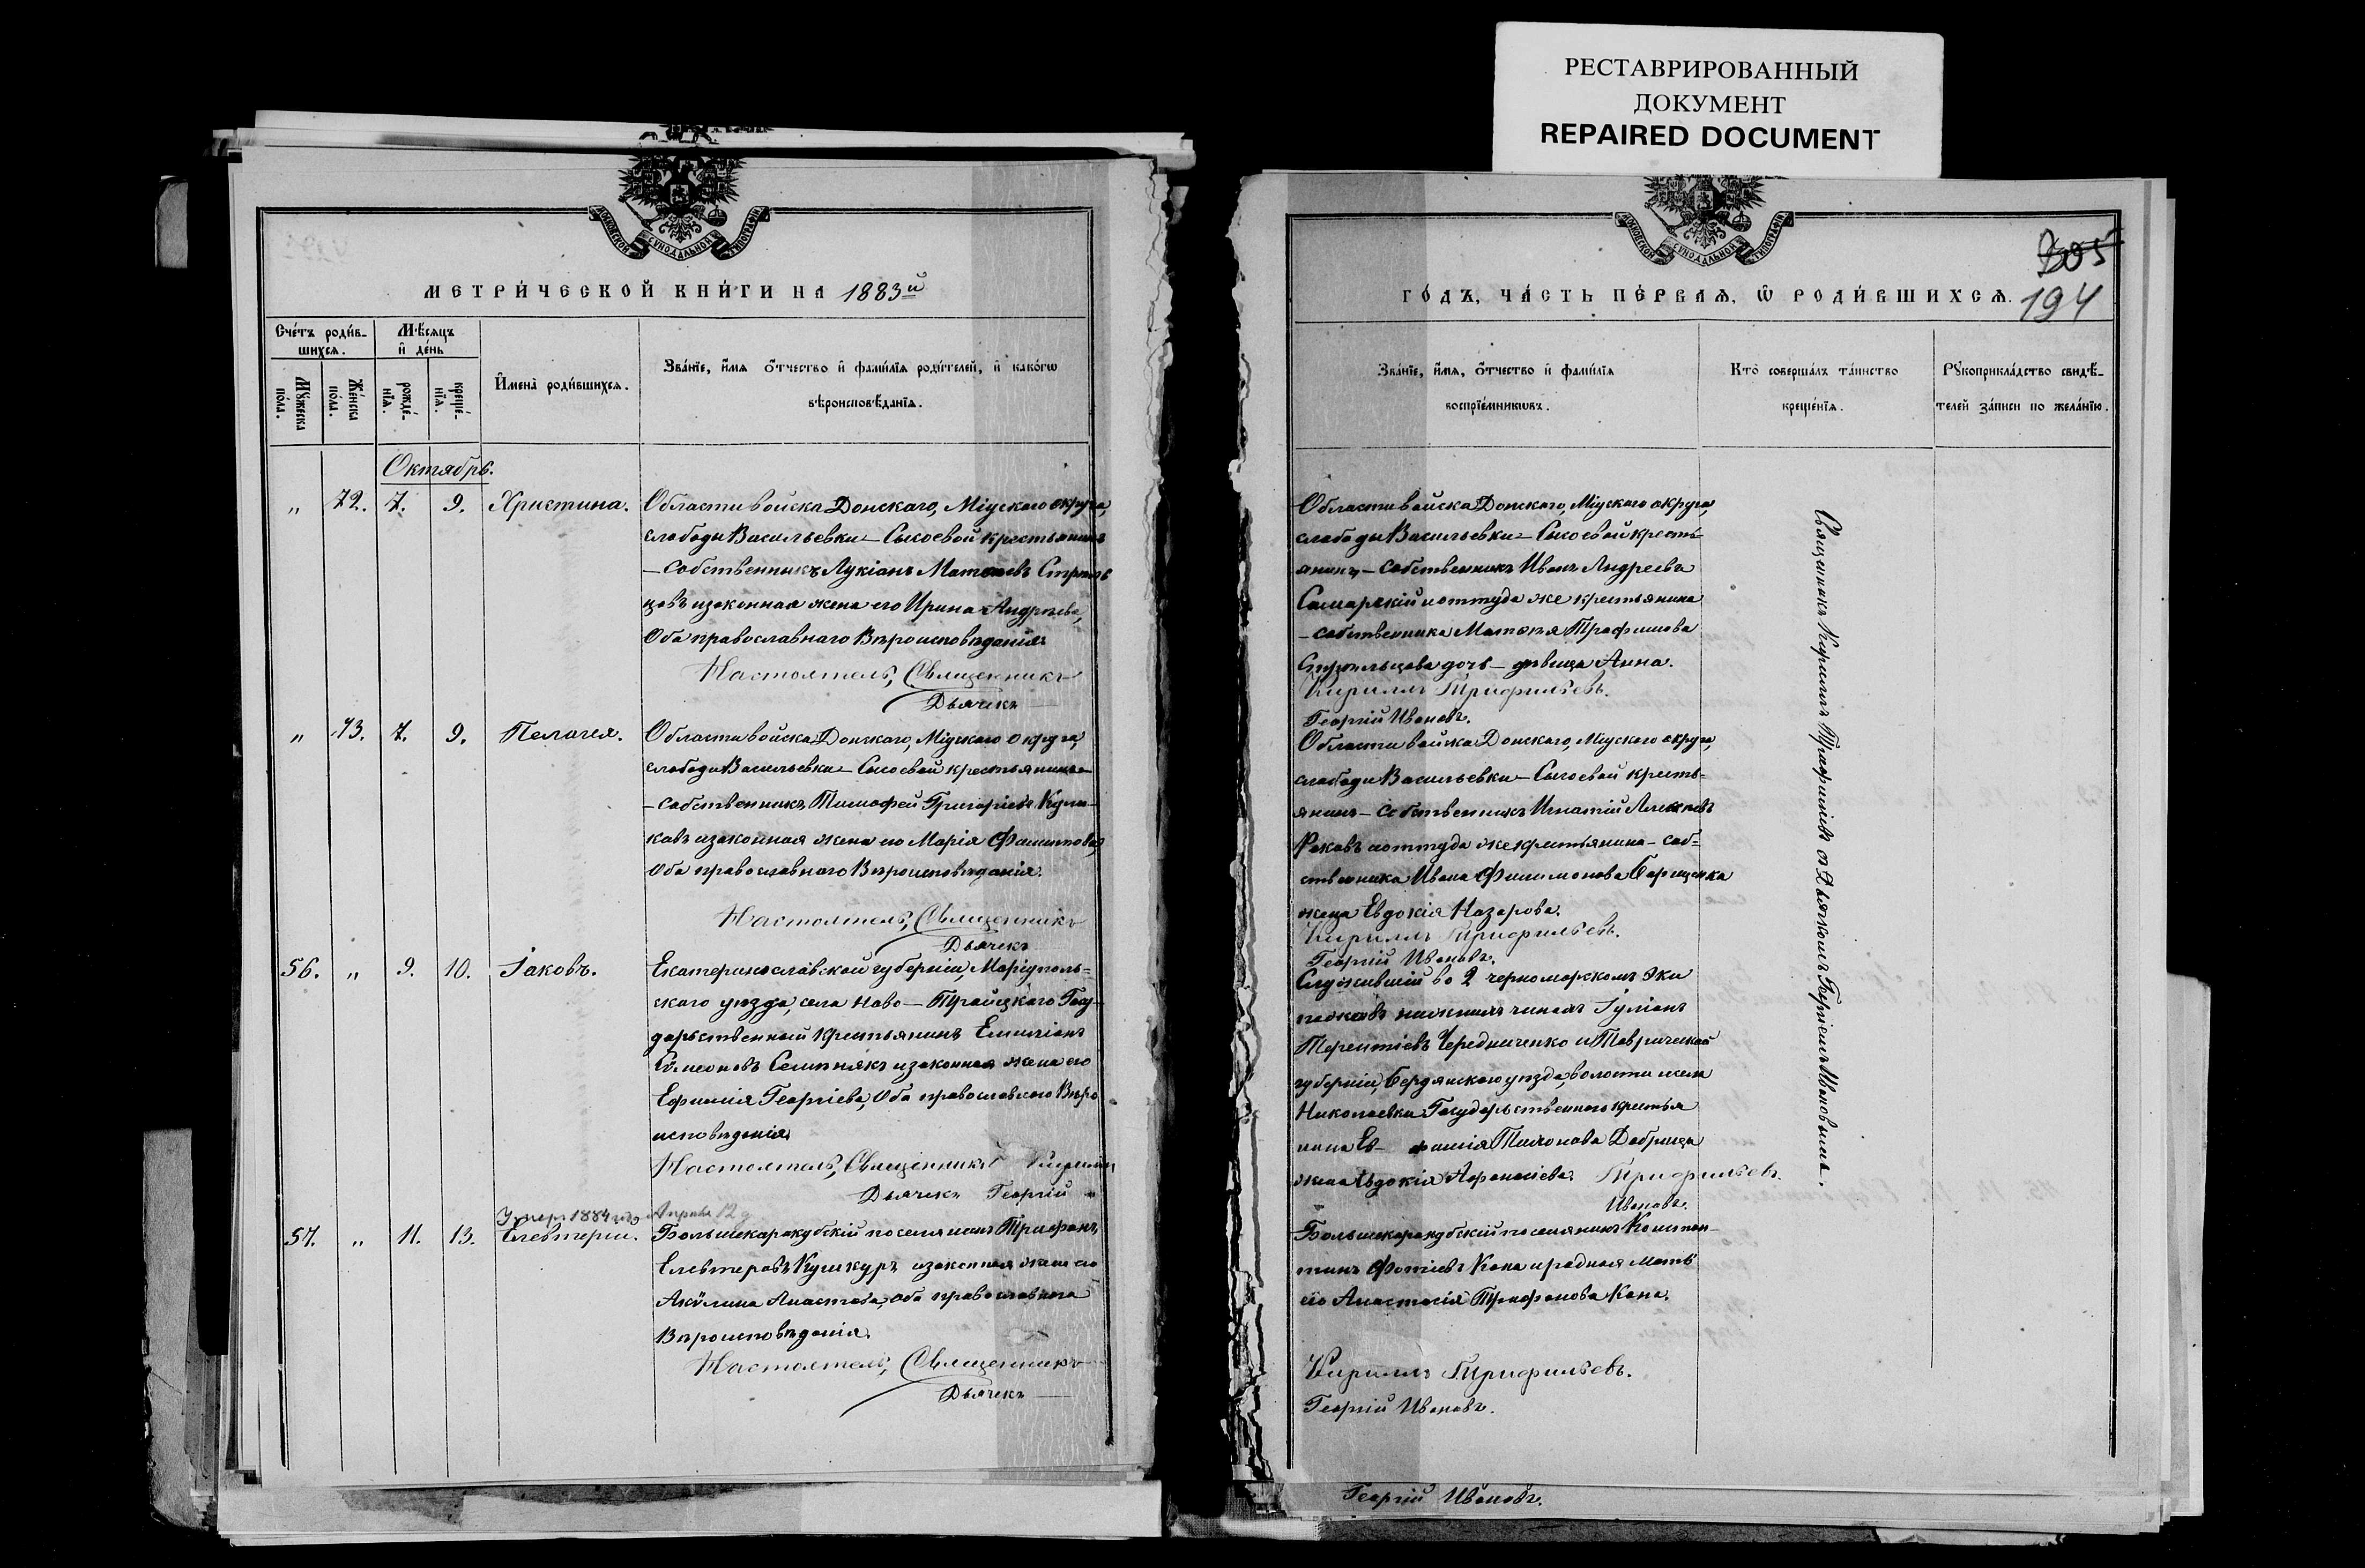 РЕСТАВРИРОВАННЫЙ
ДОКУМЕНТ
REPAIRED DOCUMENT
МОСКОВСКОЙ СѴНОДАЛЬНОЙ ТИПОГРАФІИ
МЕТРИ́ЧЕСКОЙ КНИ́ГИ НА 1883й
Сче́тъ роди́в-
шихсѧ.
Мѣ́сѧцъ
и҆ де́нь
Мꙋ́жеска
по́ла.
Же́нска
по́ла.
рожде́-
нїѧ.
креще́-
нїѧ.
И҆мена̀ роди́вшихсѧ.
Зва́нїе, и҆́мѧ ѻ҆́тчество и҆ фами́лїѧ роди́телей, и҆ како́гѡ
вѣроисповѣ́данїѧ.
Октябрь.
„ 72. 7. 9. Христина.
Области войска Донскаго, Міускаго округа,
слободы Васильевки-Сысоевой крестьянинъ
-собственникъ Лукіанъ Матѳѣевъ Стрѣль
цовъ и законная жена его Ирина Андрѣева,
Оба православнаго Вѣроисповѣданія.
Настоятель, Священникъ
Дьячекъ
„ 73. 7. 9. Пелагея.
Области войска Донскаго, Міускаго округа,
слободы Васильевки-Сысоевой крестьянинъ
-собственникъ, Тимофей Григоріевъ
ковъ и законная жена его Марія
Оба православнаго Вѣроисповѣданія.
Настоятель, Священникъ
Дьячекъ
56. „ 9. 10. Іаковъ.
Екатеринославской губерніи, Маріуполь-
скаго уѣзда, села Ново-Троицкаго Госу-
дарственный крестьянинъ Емиліанъ
Сѵмеоновъ и законная жена его
Ефимія Георгіева, Оба православнаго Вѣро
исповѣданія.
Настоятель, Священникъ Кириллъ
Дьячекъ Георгій
Умеръ 1884 года Апрѣля 12 д
57. „ 11. 13. Елевтерій.
Большекаракубскій поселянинъ Трифонъ
Елевтеровъ Кушкуръ и законная жена его
Акѵлина Анастова, оба православнаго
Вѣроисповѣданія.
Настоятель, Священникъ
Дьячекъ
МОСКОВСКОЙ СѴНОДАЛЬНОЙ ТИПОГРАФІИ
305
ГО́ДЪ, ЧА́СТЬ ПЕ́РВАѦ, Ѽ РОДИ́ВШИХСѦ. 194
Зва́нїе, и҆́мѧ, ѻ҆́тчество и҆ фами́лїѧ
воспрїе́мникѡвъ.
Кто̀ соверша́лъ та́инство
креще́нїѧ.
Рꙋкоприкла́дство свидѣ́-
телей за́писи по жела́нїю.
Области войска Донскаго, Міускаго округа,
слободы Васильевки-Сысоевой кресть-
янинъ-собственникъ Иванъ Андреевъ
Самарскій и оттуда же крестьянина
-собственника Матѳѣя Трофимова
Стрѣльцова дочь-дѣвица Анна.
Кириллъ Трифильевъ.
Георгій Ивановъ.
Области войска Донскаго, Міускаго округа,
слободы Васильевки-Сысоевой кресть-
янинъ-собственникъ Игнатій Алексѣевъ
и оттуда же крестьянина-соб-
ственника Ивана Филимонова
жена Евдокія Назарова.
Кириллъ Трифильевъ.
Георгій Ивановъ.
Служившій во 2 черноморскомъ Эки
пажѣ нижнимъ чиномъ Іуліанъ
Терентіевъ Чередниченко и Таврической
губерніи, Бердянскаго уѣзда, волости села
Николаевки Государственнаго крестья
нина Тихонова
жена Евдокія Афанасіева. Трифильевъ.
Ивановъ.
Большекаракубскій поселянинъ Констан-
тинъ Фотіевъ Хана и родная мать
его Анастасія Трифонова Хана.
Кириллъ Трифильевъ.
Георгій Ивановъ.
Священникъ Кириллъ Трифильевъ съ Дьячкомъ Георгіемъ Ивановымъ.
Георгій Ивановъ.